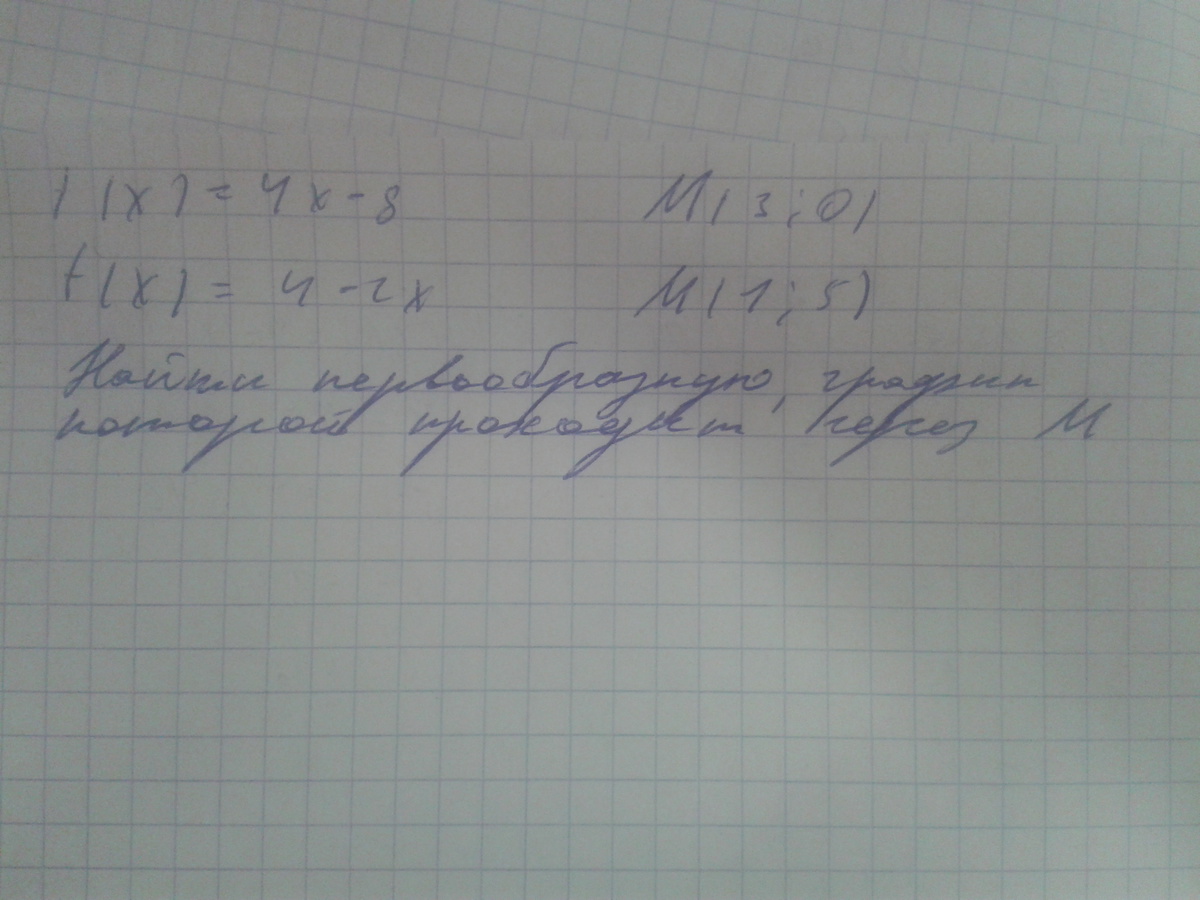 f(x) = 4x - 8 M(3;0)
f(x) = 4 - 2x M(1;5)
Найти первообразную, график
которой проходит через M